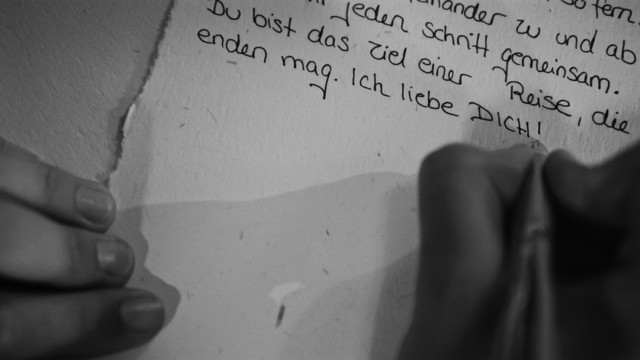 so fern.
einander zu und ab
jeden schritt gemeinsam.
Du bist das Ziel einer Reise, die
enden mag. Ich liebe DICH!